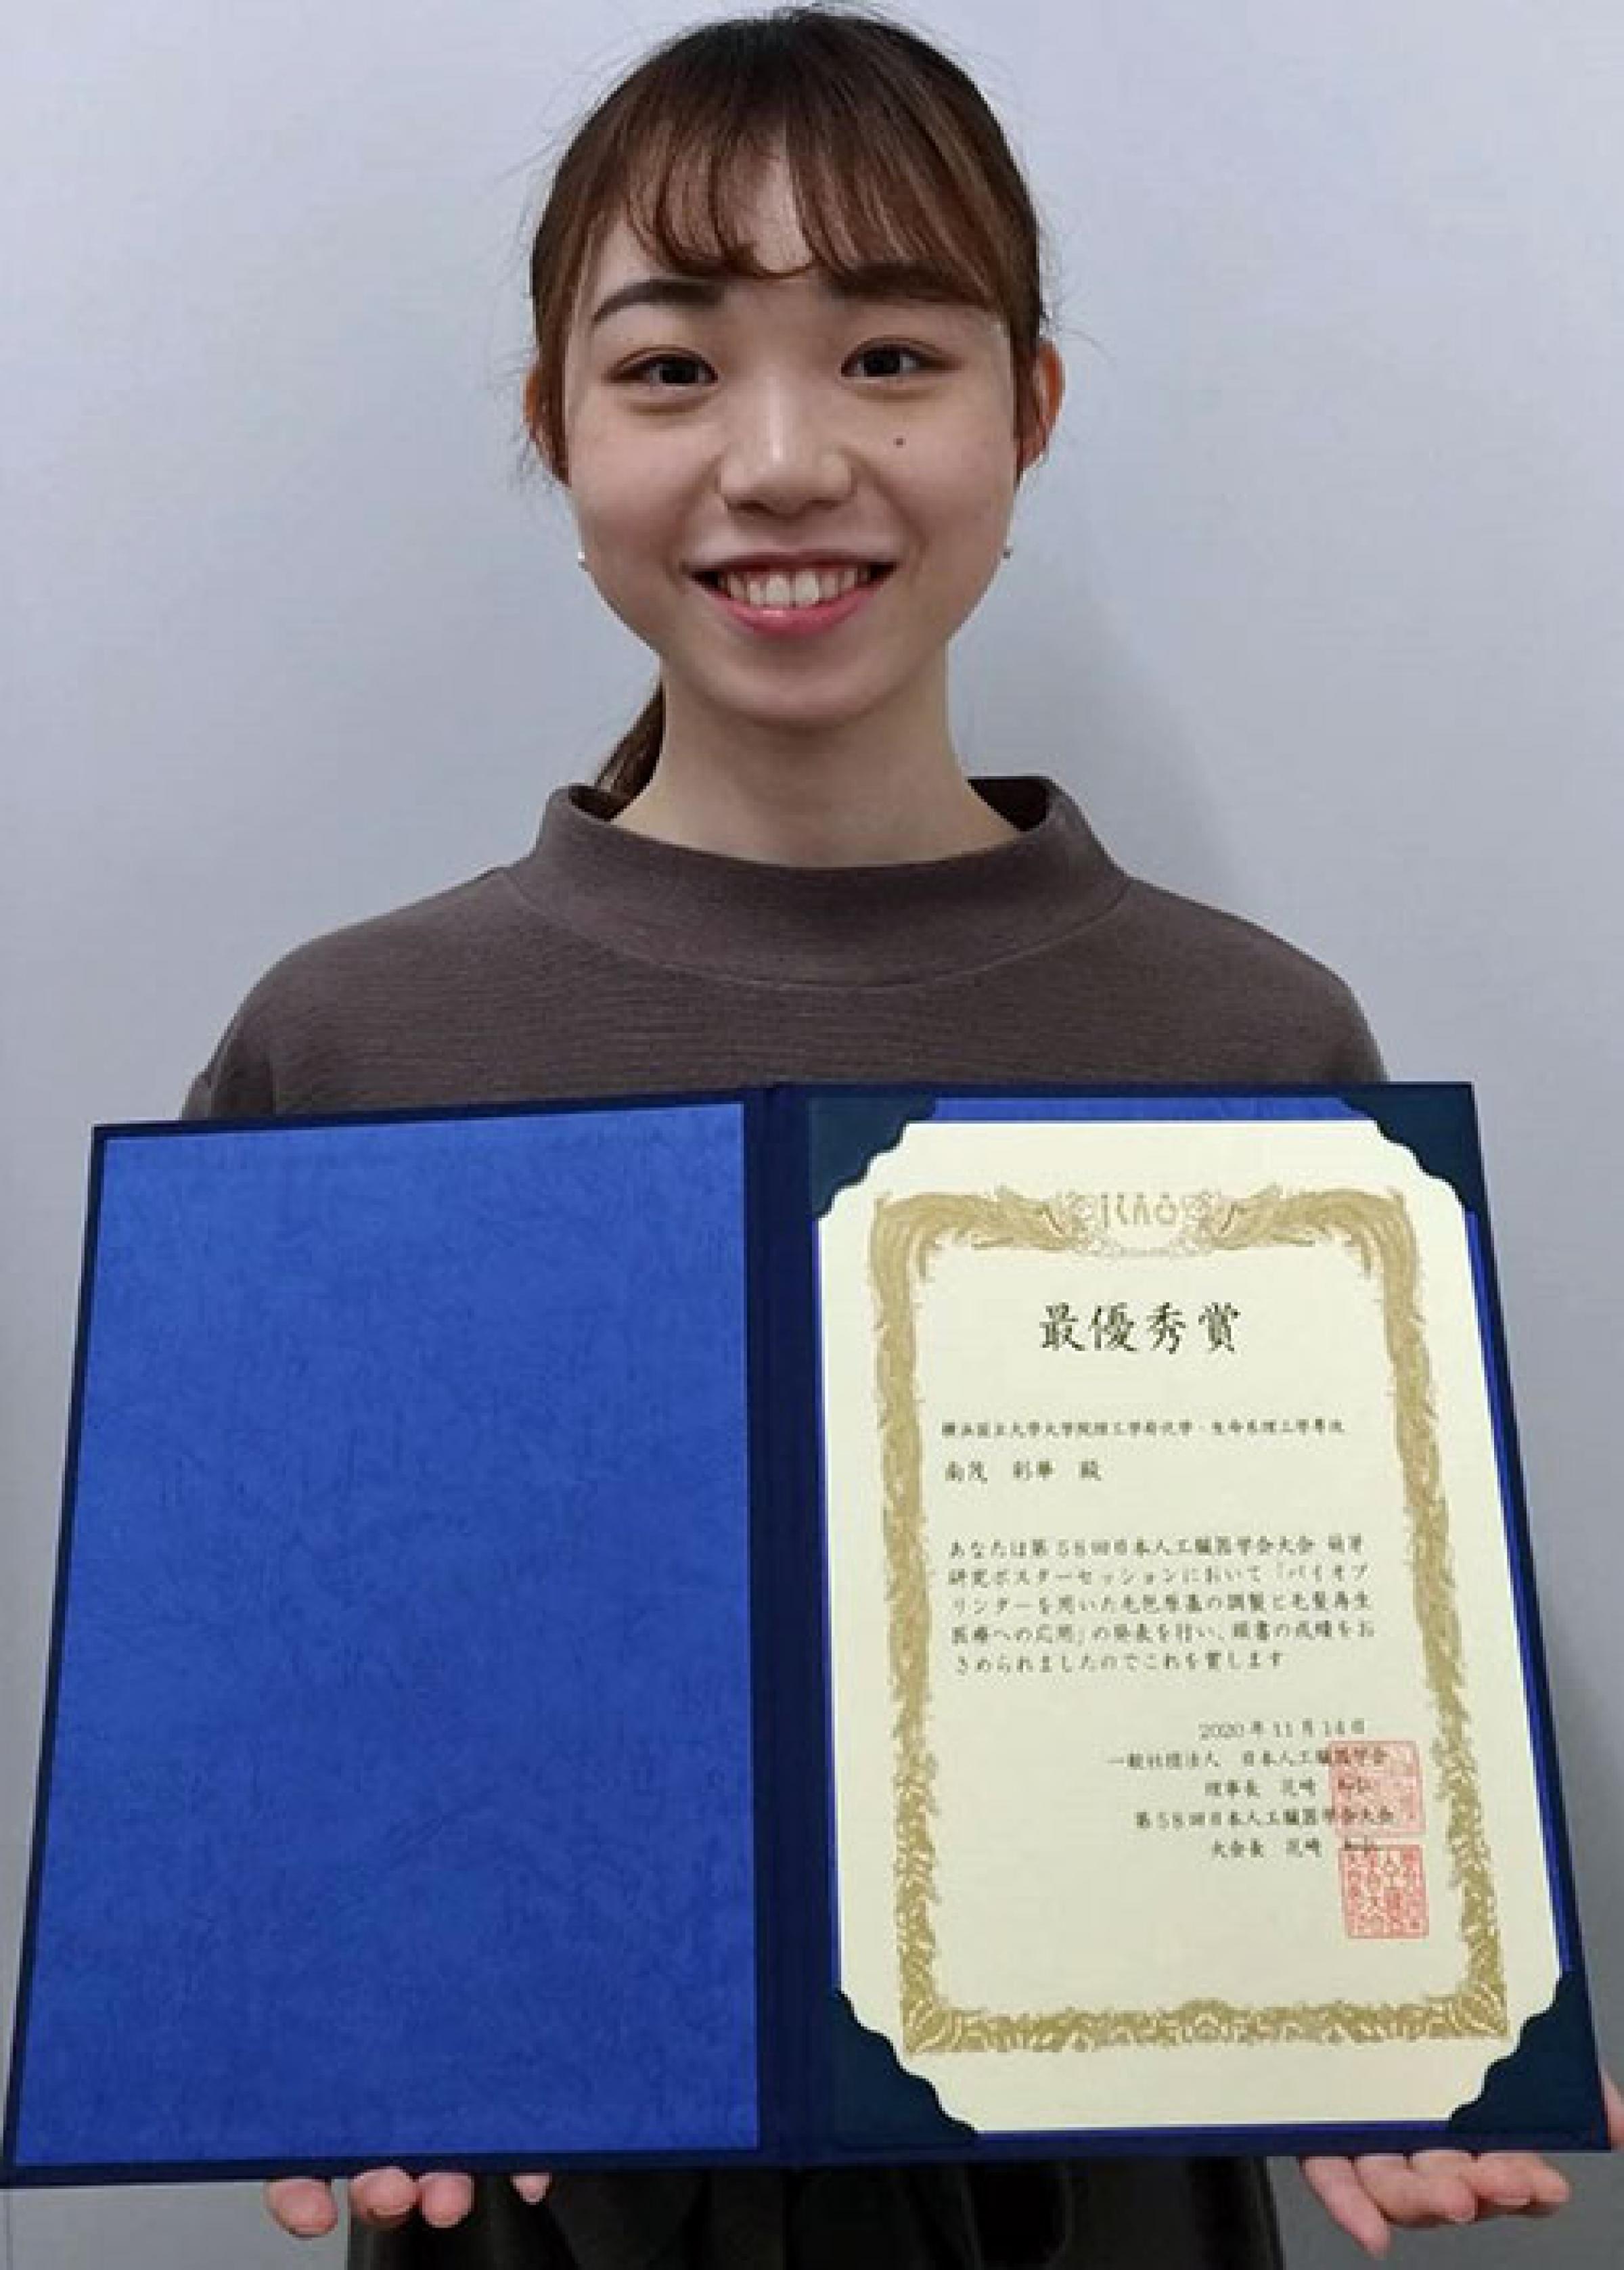 最優秀賞
横浜国立大学大学院理工学府化学・生命系理工学専攻
南茂 彩華 殿
あなたは第58回日本人工臓器学会大会 萌芽
研究ポスターセッションにおいて「バイオプ
リンターを用いた毛包原基の調製と毛髪再生
医療への応用」の発表を行い、頭書の成績をお
さめられましたのでこれを賞します
2020年11月14日
一般社団法人 日本人工臓器学会
理事長 花崎
第58回日本人工臓器学会大会
大会長 花崎